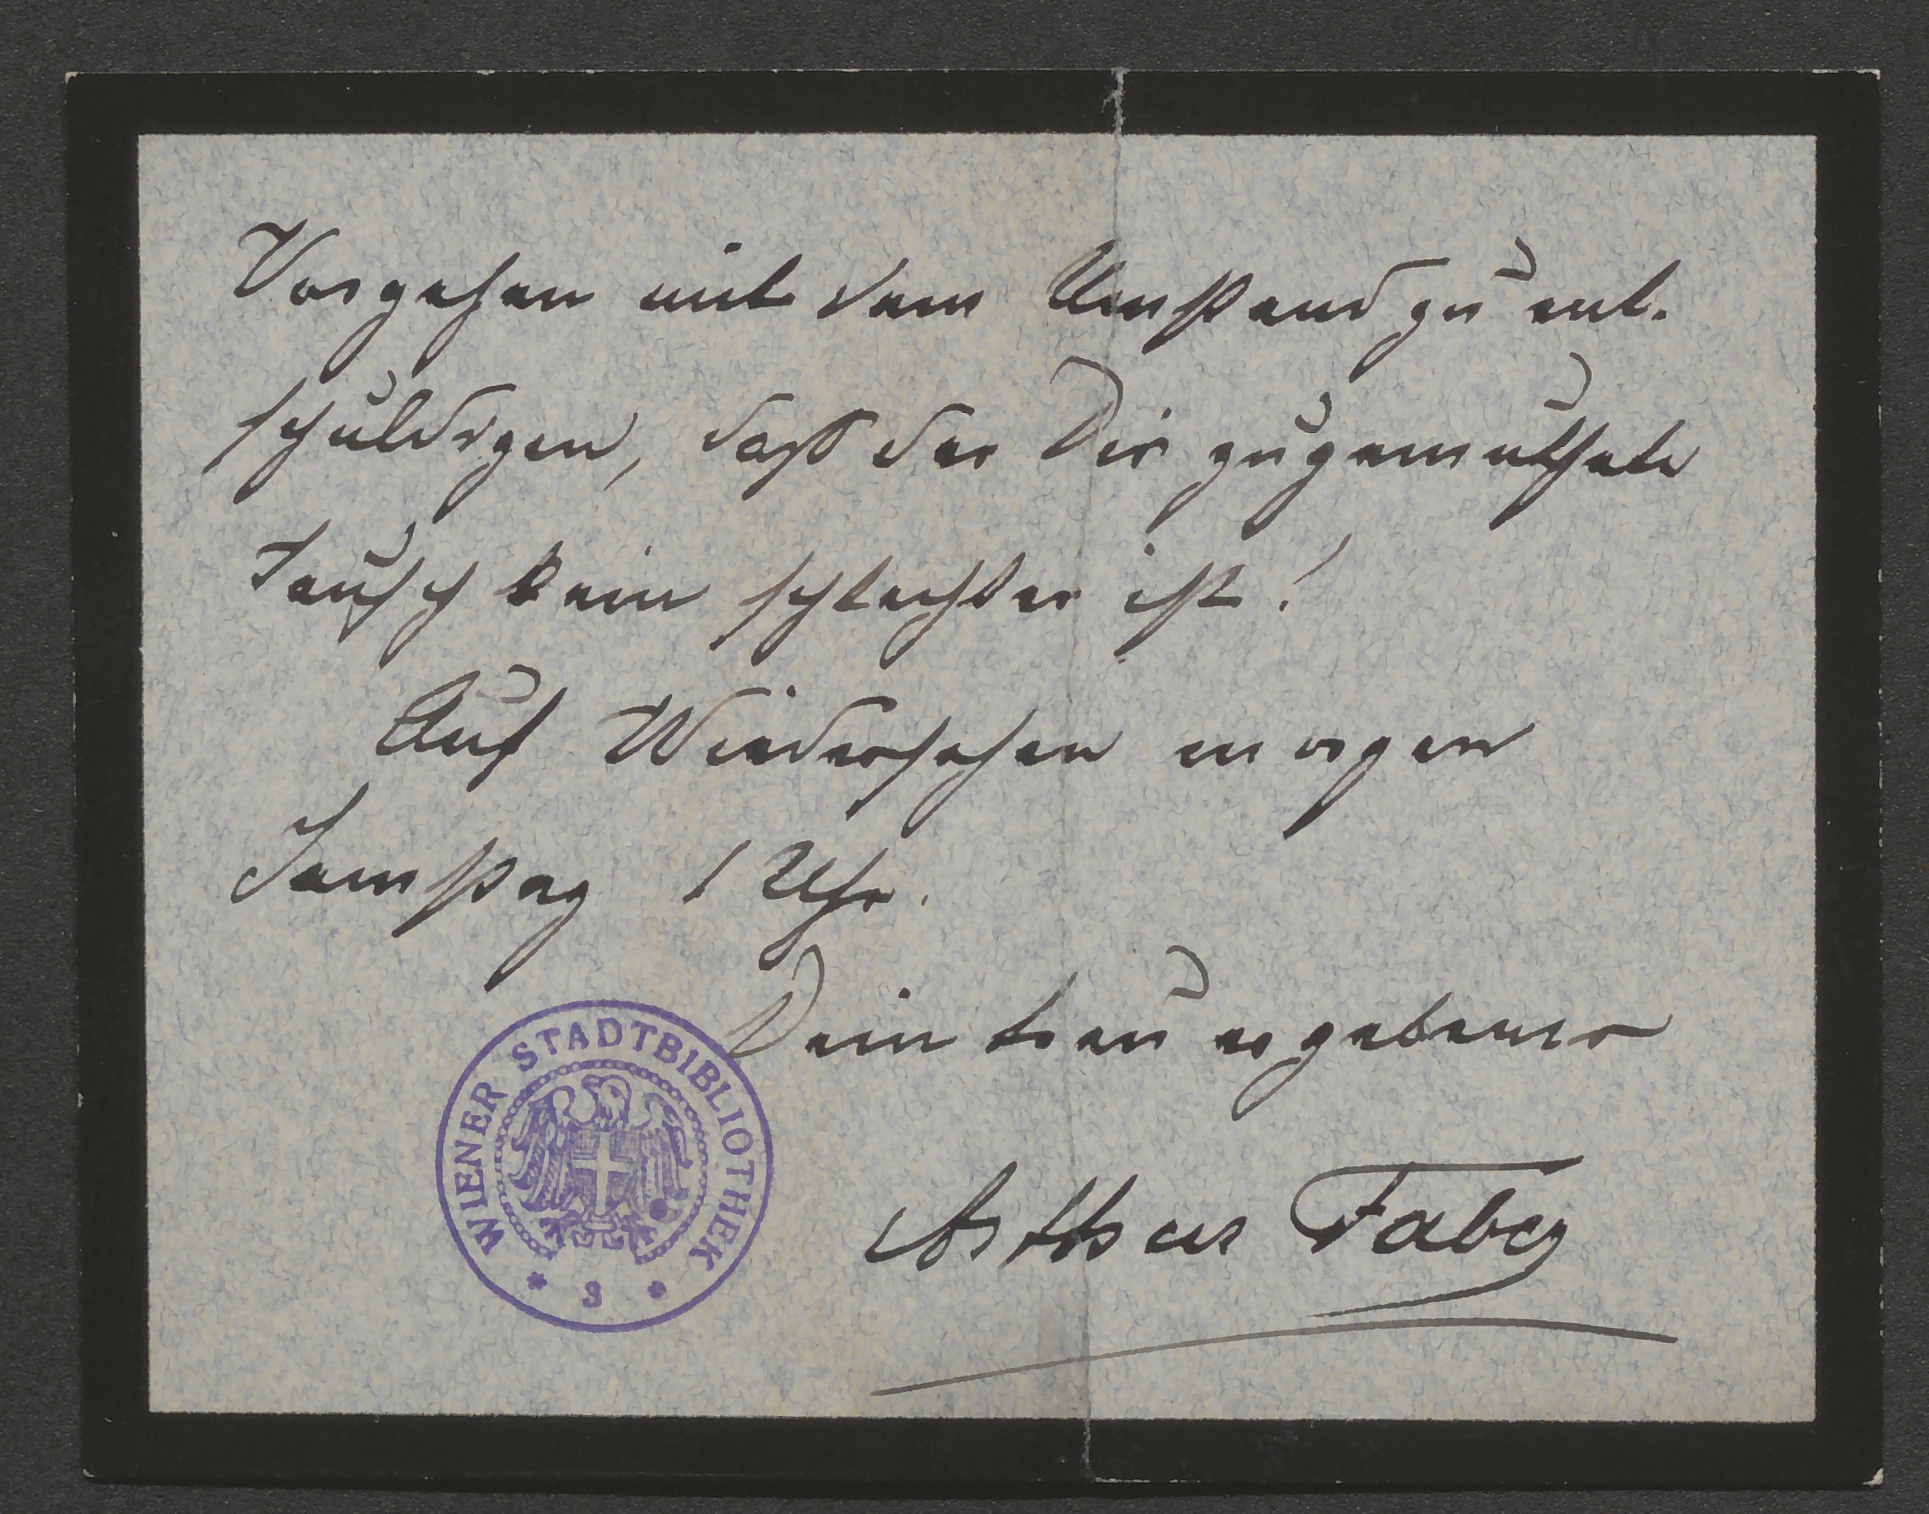 Vorgehen mit dem Umstand zu ent-
schuldigen, daß der Dir zugemuthete
Tausch kein schlechter ist!
Auf Wiedersehen morgen
Samstag 1 Uhr.
Dein treu ergebener
Arthur Faber
WIENER STADTBIBLIOTHEK
* 3 *